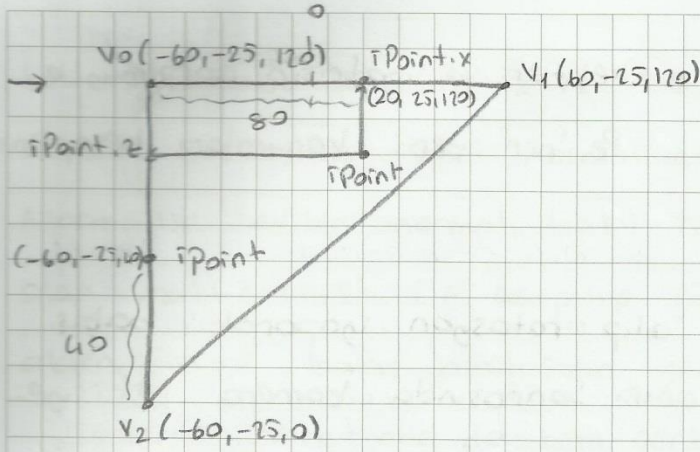 0
V0 (-60, -25, 120) iPoint.x
V1 (60, -25, 120)
(20, 25, 120)
80
iPoint.z
iPoint
(-60, -25, 40) iPoint
40
V2 (-60, -25, 0)